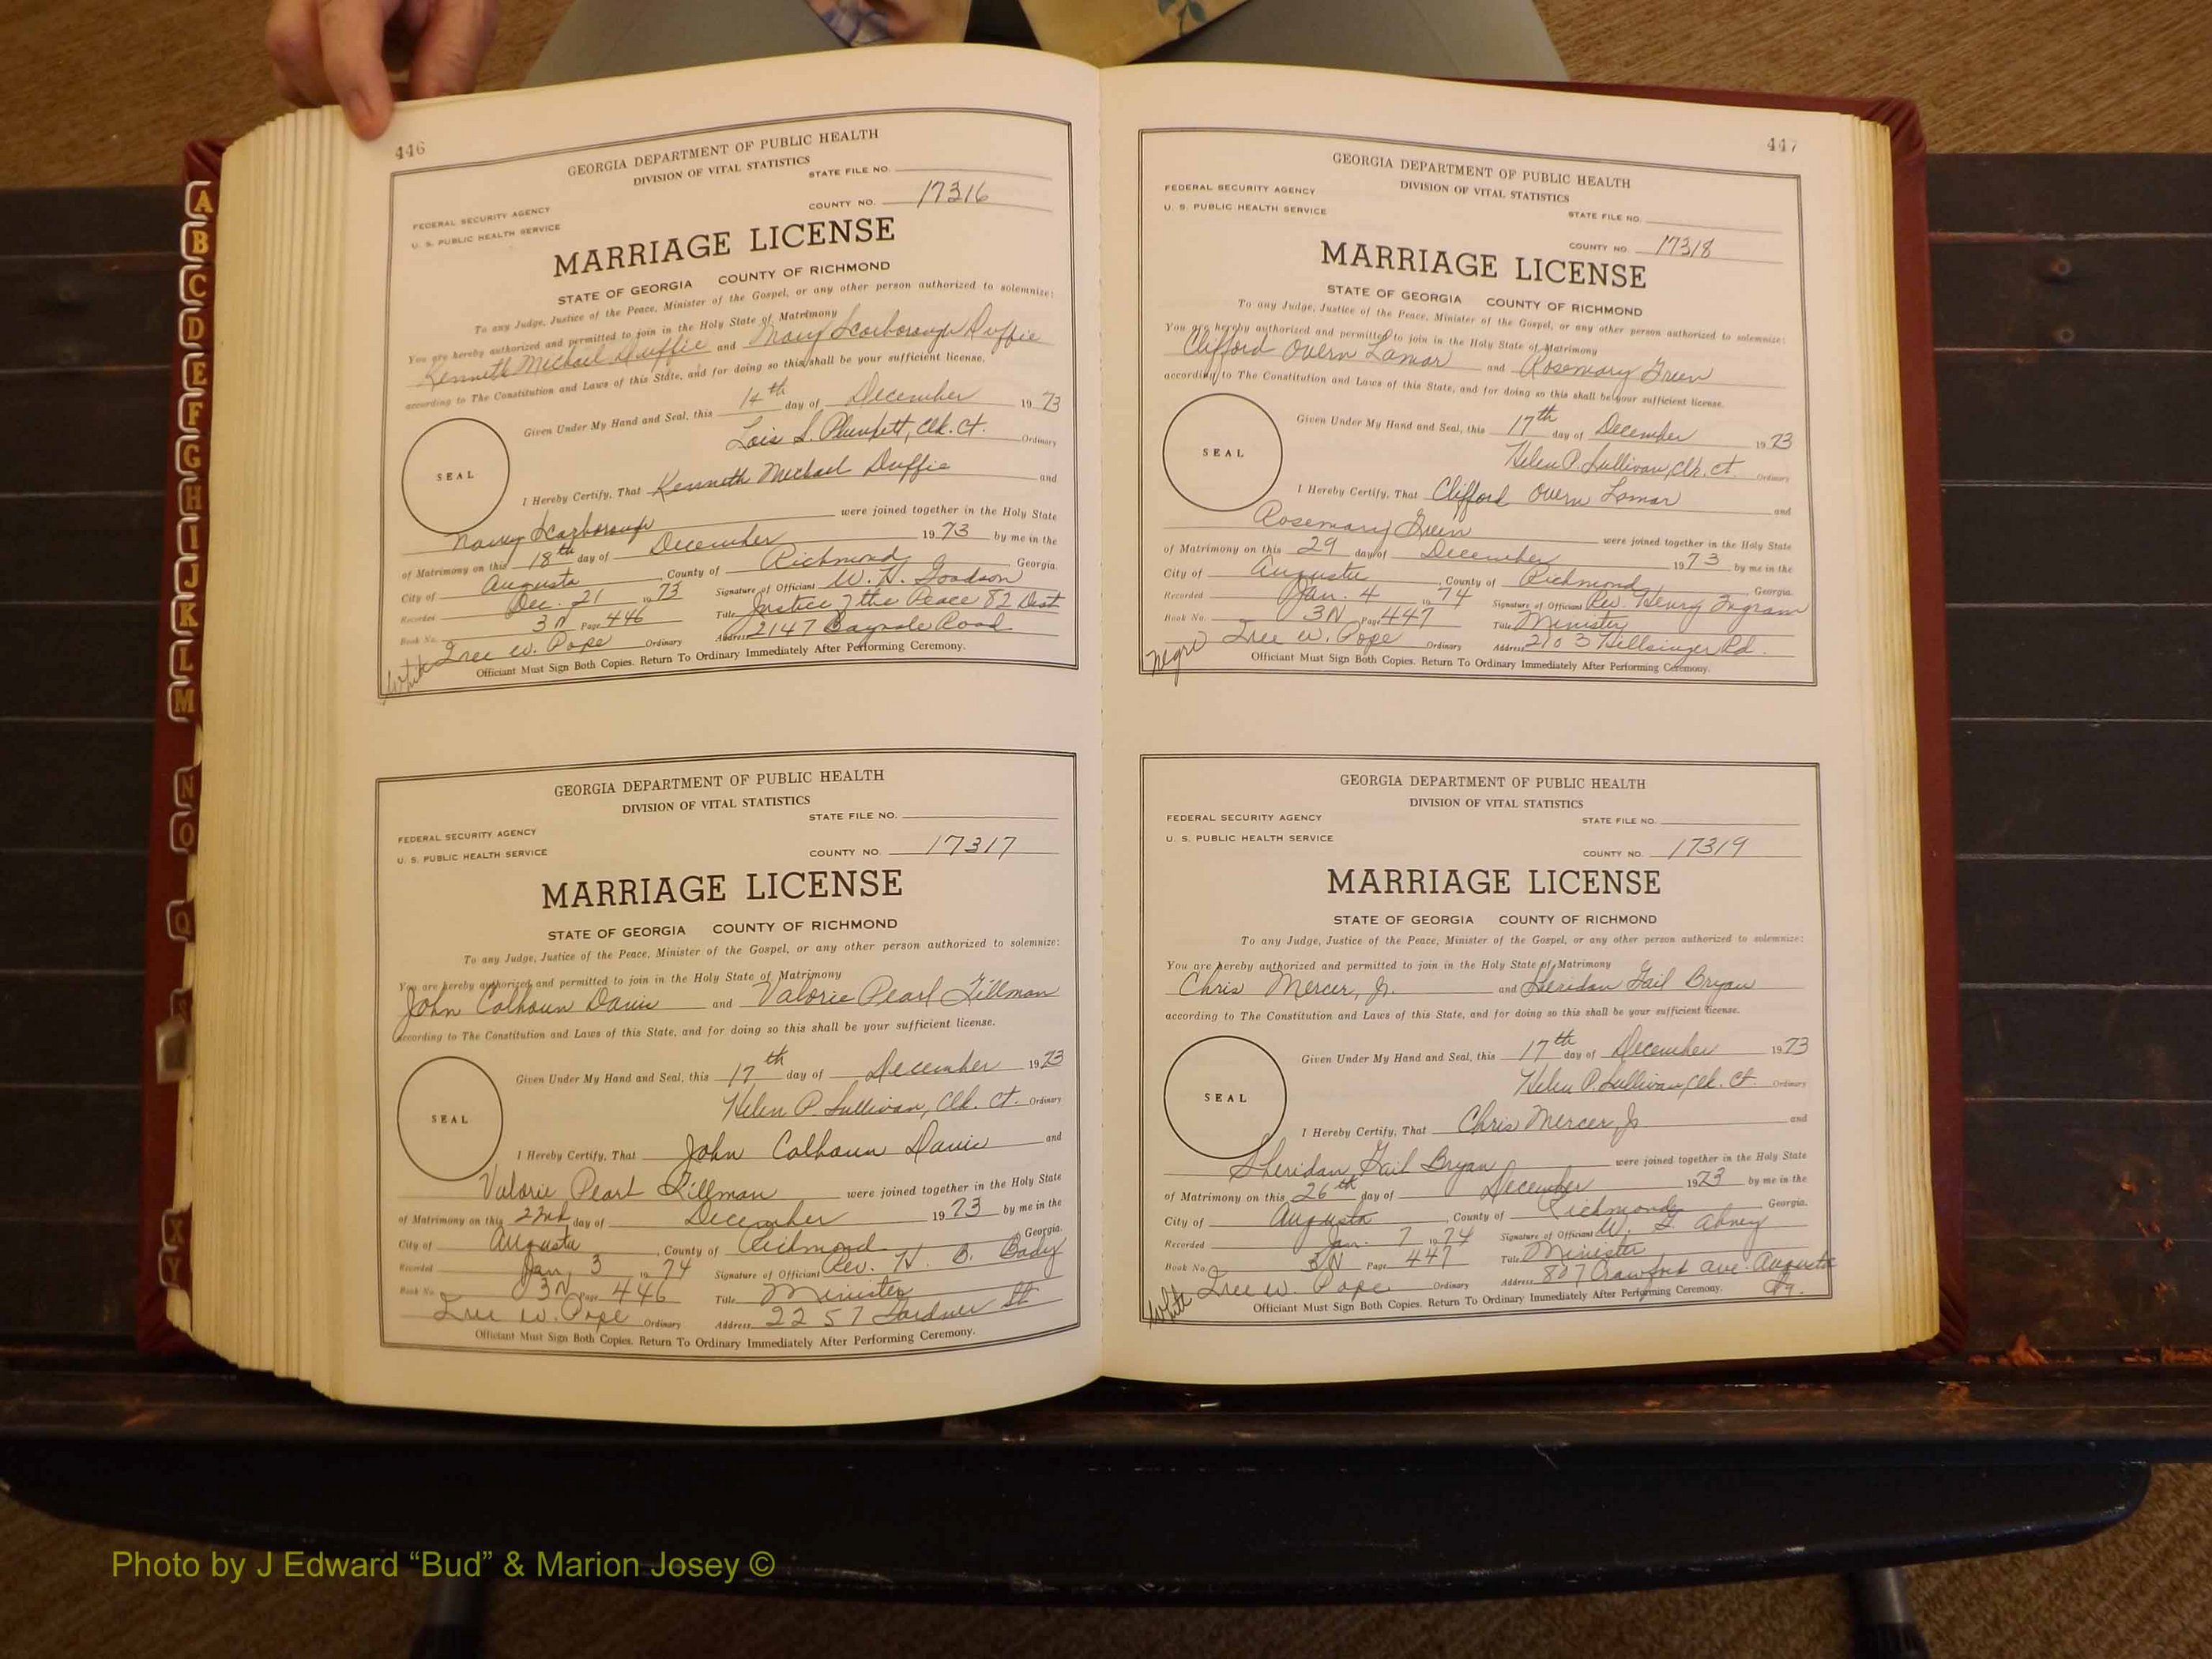 446
GEORGIA DEPARTMENT OF PUBLIC HEALTH
DIVISION OF VITAL STATISTICS
STATE FILE NO.
FEDERAL SECURITY AGENCY
U. S. PUBLIC HEALTH SERVICE
COUNTY NO. 17316
MARRIAGE LICENSE
STATE OF GEORGIA COUNTY OF RICHMOND
To any Judge, Justice of the Peace, Minister of the Gospel, or any other person authorized to solemnize:
You are hereby authorized and permitted to join in the Holy State of Matrimony
Kenneth Michael Duffie and Scarborough Duffie
according to The Constitution and Laws of this State, and for doing so this shall be your sufficient license.
Given Under My Hand and Seal, this 14th day of December 1973
Lois S. Plunkett, Clk. Ct. Ordinary
SEAL
I Hereby Certify, That Kenneth Michael Duffie and
Nancy Scarborough were joined together in the Holy State
of Matrimony on this 18th day of December 1973 by me in the
City of Augusta, County of Richmond, Georgia.
Recorded Dec. 21 1973 Signature of Officiant W. H. Goodson
Book No. 3N Page 446 Title Justice of the Peace 82 Dist
W. Pope Ordinary Address 2147 Road
Officiant Must Sign Both Copies. Return To Ordinary Immediately After Performing Ceremony.
White
GEORGIA DEPARTMENT OF PUBLIC HEALTH
DIVISION OF VITAL STATISTICS
STATE FILE NO.
FEDERAL SECURITY AGENCY
U. S. PUBLIC HEALTH SERVICE
COUNTY NO. 17317
MARRIAGE LICENSE
STATE OF GEORGIA COUNTY OF RICHMOND
To any Judge, Justice of the Peace, Minister of the Gospel, or any other person authorized to solemnize:
You are hereby authorized and permitted to join in the Holy State of Matrimony
John Calhoun Davis and Valorie Pearl Tillman
according to The Constitution and Laws of this State, and for doing so this shall be your sufficient license.
Given Under My Hand and Seal, this 17th day of December 1973
Helen P. Sullivan, Clk. Ct. Ordinary
SEAL
I Hereby Certify, That John Calhoun Davis and
Valorie Pearl Tillman were joined together in the Holy State
of Matrimony on this 22nd day of December 1973 by me in the
City of Augusta, County of Richmond, Georgia.
Recorded Jan. 3 1974 Signature of Officiant Rev. H. B. Body
Book No. 3N Page 446 Title Minister
W. Pope Ordinary Address 2257 Gardner St
Officiant Must Sign Both Copies. Return To Ordinary Immediately After Performing Ceremony.
447
GEORGIA DEPARTMENT OF PUBLIC HEALTH
DIVISION OF VITAL STATISTICS
FEDERAL SECURITY AGENCY
U. S. PUBLIC HEALTH SERVICE
STATE FILE NO.
COUNTY NO. 17318
MARRIAGE LICENSE
STATE OF GEORGIA COUNTY OF RICHMOND
To any Judge, Justice of the Peace, Minister of the Gospel, or any other person authorized to solemnize:
You are hereby authorized and permitted to join in the Holy State of Matrimony
Clifford Overn Lamar and Rosemary Green
according to The Constitution and Laws of this State, and for doing so this shall be your sufficient license.
Given Under My Hand and Seal, this 17th day of December 1973
Helen P. Sullivan, Clk. Ct. Ordinary
SEAL
I Hereby Certify, That Clifford Overn Lamar and
Rosemary Green were joined together in the Holy State
of Matrimony on this 29 day of December 1973 by me in the
City of Augusta, County of Richmond, Georgia.
Recorded Jan. 4 1974 Signature of Officiant Rev. Henry Ingram
Book No. 3N Page 447 Title Minister
W. Pope Ordinary Address 2103 Hillsinger Rd.
Officiant Must Sign Both Copies. Return To Ordinary Immediately After Performing Ceremony.
Negro
GEORGIA DEPARTMENT OF PUBLIC HEALTH
DIVISION OF VITAL STATISTICS
FEDERAL SECURITY AGENCY
STATE FILE NO.
U. S. PUBLIC HEALTH SERVICE
COUNTY NO. 17319
MARRIAGE LICENSE
STATE OF GEORGIA COUNTY OF RICHMOND
To any Judge, Justice of the Peace, Minister of the Gospel, or any other person authorized to solemnize:
You are hereby authorized and permitted to join in the Holy State of Matrimony
Chris Mercer, Jr. and Sheridan Gail Bryan
according to The Constitution and Laws of this State, and for doing so this shall be your sufficient license.
Given Under My Hand and Seal, this 17th day of December 1973
Helen P. Sullivan, Clk. Ct. Ordinary
SEAL
I Hereby Certify, That Chris Mercer, Jr. and
Sheridan Gail Bryan were joined together in the Holy State
of Matrimony on this 26th day of December 1973 by me in the
City of Augusta, County of Richmond, Georgia.
Recorded Jan. 7 1974 Signature of Officiant W. Abney
Book No. 3N Page 447 Title Minister
W. Pope Ordinary Address 807 Crawford Ave. Augusta
Ga.
Officiant Must Sign Both Copies. Return To Ordinary Immediately After Performing Ceremony.
White
A
B
C
D
E
F
G
H
I
J
K
L
M
N
O
Q
S
X
Y
Photo by J Edward “Bud” & Marion Josey ©